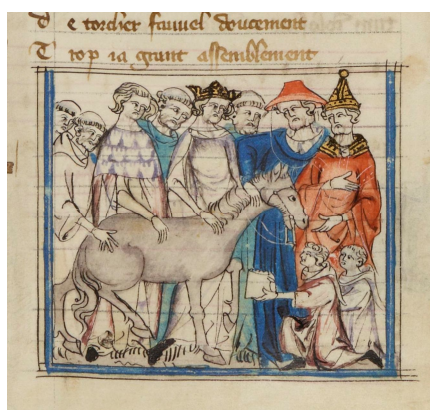 D e torcher fauuel doucement
T rop ia grant assemblement